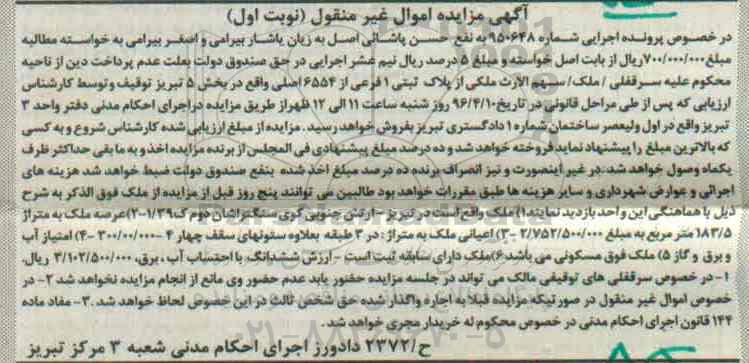 آگهی مزایده اموال غیر منقول (نوبت اول)
در خصوص پرونده اجرایی شماره ۹۵۰۶۴۸ به نفع حسن پاشائی اصل به زیان یاشار بیرامی و اصغر بیرامی به خواسته مطالبه
مبلغ ۷۰۰/۰۰۰/۰۰۰ ریال از بابت اصل خواسته و مبلغ ۵ درصد ریال نیم عشر اجرایی در حق صندوق دولت بعلت عدم پرداخت دین از ناحیه
محکوم علیه سرقفلی / ملک / سهم الارث ملکی از پلاک ثبتی ۱ فرعی از ۶۵۵۴ اصلی واقع در بخش ۵ تبریز توقیف و توسط کارشناس
ارزیابی که پس از طی مراحل قانونی در تاریخ ۹۶/۴/۱۰ روز شنبه ساعت ۱۱ الی ۱۲ ظهر از طریق مزایده در اجرای احکام مدنی دفتر واحد ۳
تبریز واقع در اول ولیعصر ساختمان شماره ۱ دادگستری تبریز بفروش خواهد رسید. مزایده از مبلغ ارزیابی شده کارشناس شروع و به کسی
که بالاترین مبلغ را پیشنهاد نماید فروخته خواهد شد و ده درصد مبلغ پیشنهادی فی المجلس از برنده مزایده اخذ و مابقی حداکثر ظرف
یکماه وصول خواهد شد. در غیر اینصورت و نیز انصراف برنده ده درصد مبلغ اخذ شده بنفع صندوق دولت ضبط خواهد شد هزینه های
اجرائی و عوارض شهرداری و سایر هزینه ها طبق مقررات خواهد بود طالبین می توانند پنج روز قبل از مزایده از ملک فوق الذکر به شرح
ذیل با هماهنگی این واحد بازدید نمایند ۱) ملک واقع است در تبریز - ارتش جنوبی کوی سنگتراشان دوم ک ۱/۳۹ -۲) عرصه ملک به متراژ
۱۸۳/۵ متر مربع به مبلغ ۲/۷۵۲/۵۰۰/۰۰۰ -۳) اعیانی ملک به متراژ: در ۳ طبقه بعلاوه ستونهای سقف چهار ۴ -۳۰۰/۰۰/۰۰۰ -۴) امتیاز آب
و برق و گاز ۵) ملک فوق مسکونی می باشد ۶) ملک دارای سابقه ثبت است - ارزش ششدانگ با احتساب آب، برق، ۳/۱۰۲/۵۰۰/۰۰۰ ریال.
۱- در خصوص سرقفلی های توقیفی مالک می تواند در جلسه مزایده حضور یابد عدم حضور وی مانع از انجام مزایده نخواهد شد ۲- در
خصوص اموال غیر منقول در صورتیکه مزایده قبلا به اجاره واگذار شده حق شخص ثالث در این خصوص لحاظ خواهد شد .۳- مفاد ماده
۱۴۴ قانون اجرای احکام مدنی در خصوص محکوم له خریدار مجری خواهد شد.
ح/۲۳۷۲ دادورز اجرای احکام مدنی شعبه ۳ مرکز تبریز